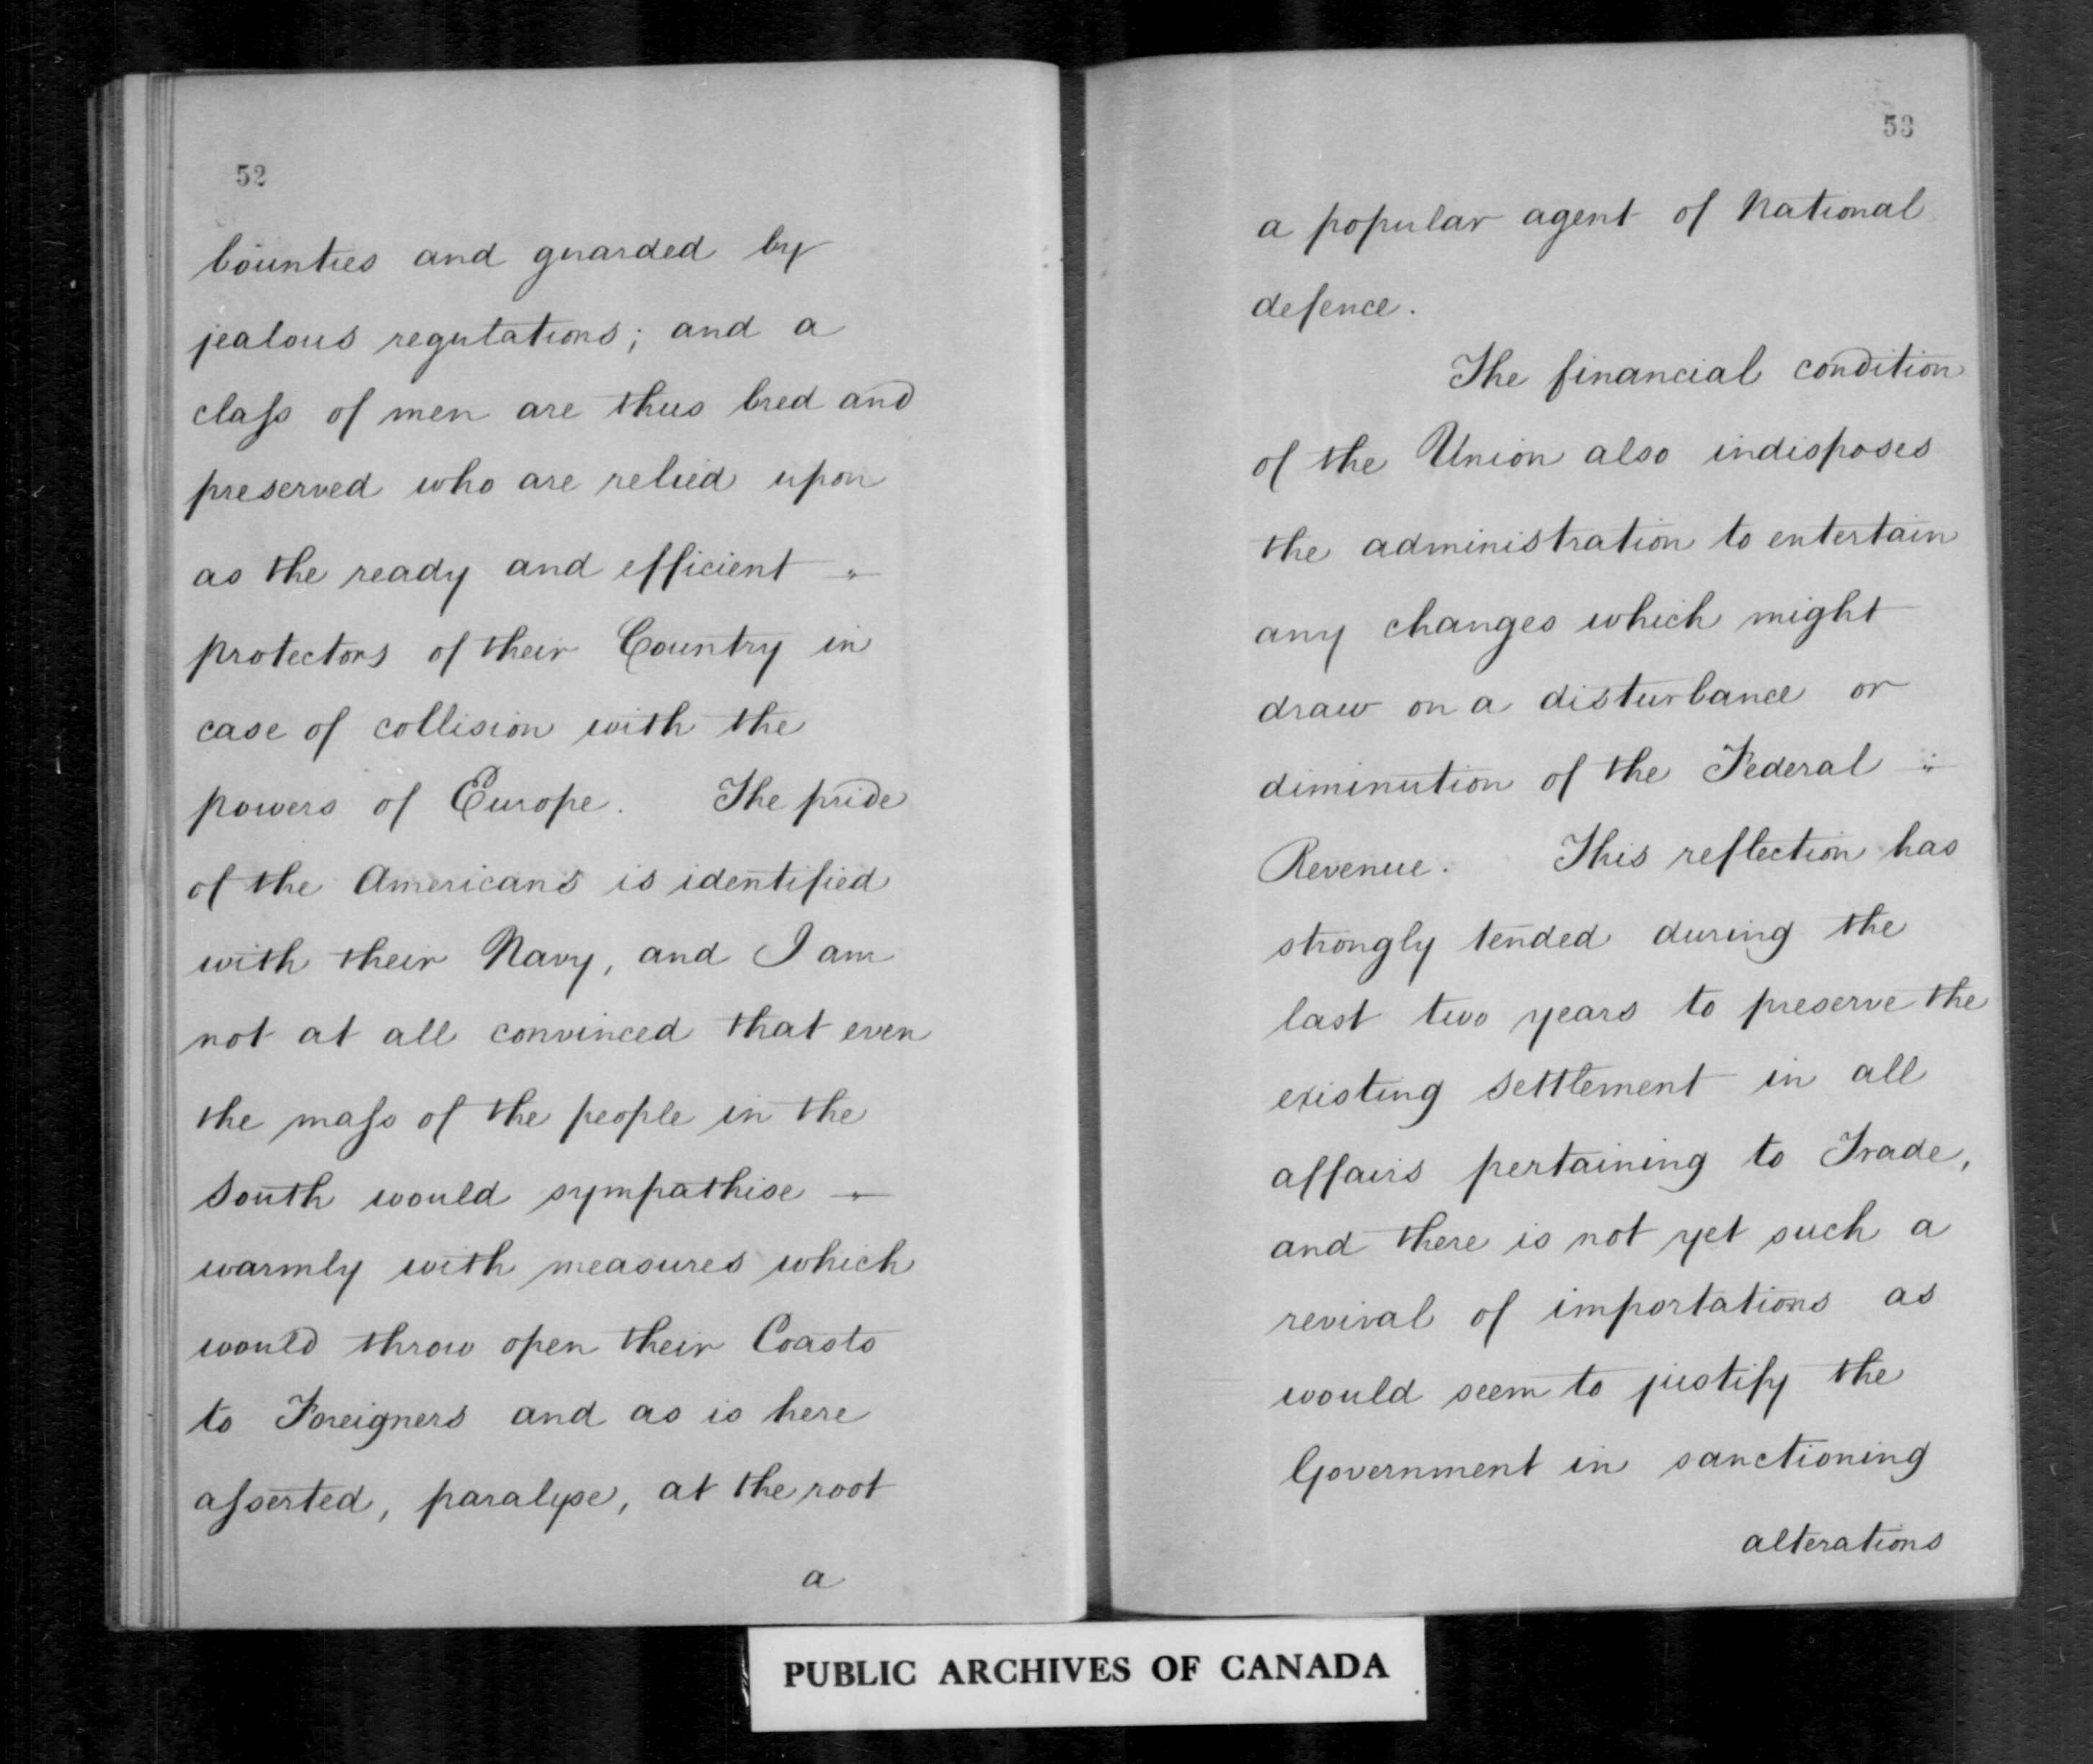 52
bounties and guarded by
jealous regulations; and a
class of men are thus bred and
preserved who are relied upon
as the ready and efficient "
protectors of their Country in
case of collision with the
powers of Europe. The pride
of the Americans is identified
with their Navy, and I am
not at all convinced that even
the mass of the people in the
South would sympathise "
warmly with measures which
would throw open their Coasts
to Foreigners and as is here
asserted, paralyse, at the root
a
53
a popular agent of National
defence.
The financial condition
of the Union also indisposes
the administration to entertain
any changes which might
draw on a disturbance or
diminution of the Federal "
Revenue. This reflection has
strongly tended during the
last two years to preserve the
existing settlement in all
affairs pertaining to Trade,
and there is not yet such a
revival of importations as
would seem to justify the
Government in sanctioning
alterations
PUBLIC ARCHIVES OF CANADA